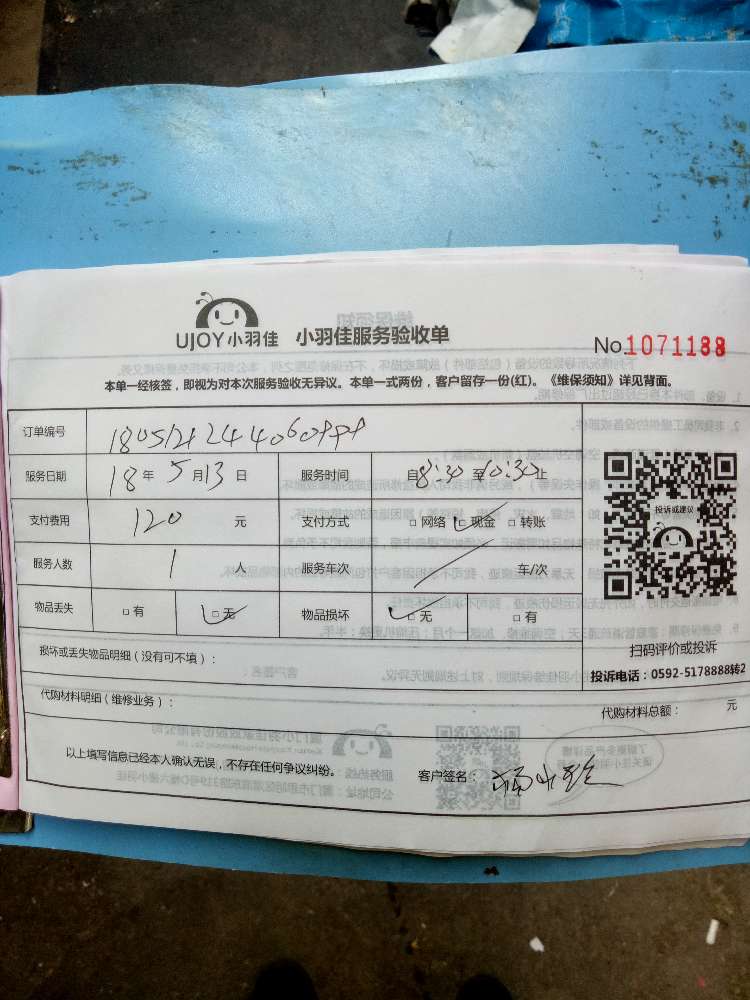 UJOY小羽佳 小羽佳服务验收单
No.1071188
本单一经核签，即视为对本次服务验收无异议。本单一式两份，客户留存一份(红)。《维保须知》详见背面。
订单编号
服务日期 18年5月13日 服务时间 自8:30至10:30止
支付费用 120元 支付方式 □网络 □现金 □转账
服务人数 1人 服务车次 车/次
物品丢失 □有 □无 物品损坏 □无 □有
投诉或建议
扫码评价或投诉
投诉电话：0592-5178888转2
损坏或丢失物品明细（没有可不填）：
代购材料明细（维修业务）： 代购材料总额： 元
以上填写信息已经本人确认无误，不存在任何争议纠纷。 客户签名：